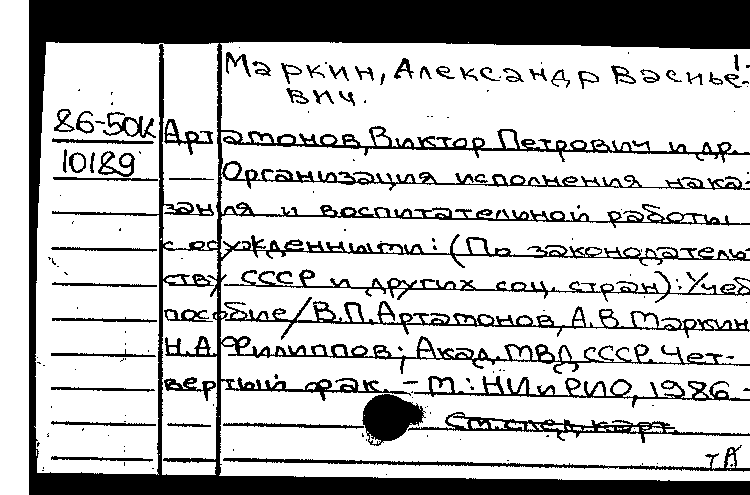 1-
Маркин, Александр Василье-
вич.
86-50К Артамонов, Виктор Петрович и др.
10189 Организация исполнения нака-
зания и воспитательной работы
с осужденными: (По законодатель
ству СССР и других соц. стран): Учеб
пособие/В.П.Артамонов, А.В.Маркин
Н.А.Филиппов; Акад. МВД СССР. Чет-
вертый фак. – М.: НИиРИО, 1986 –
См. след. карт.
тА